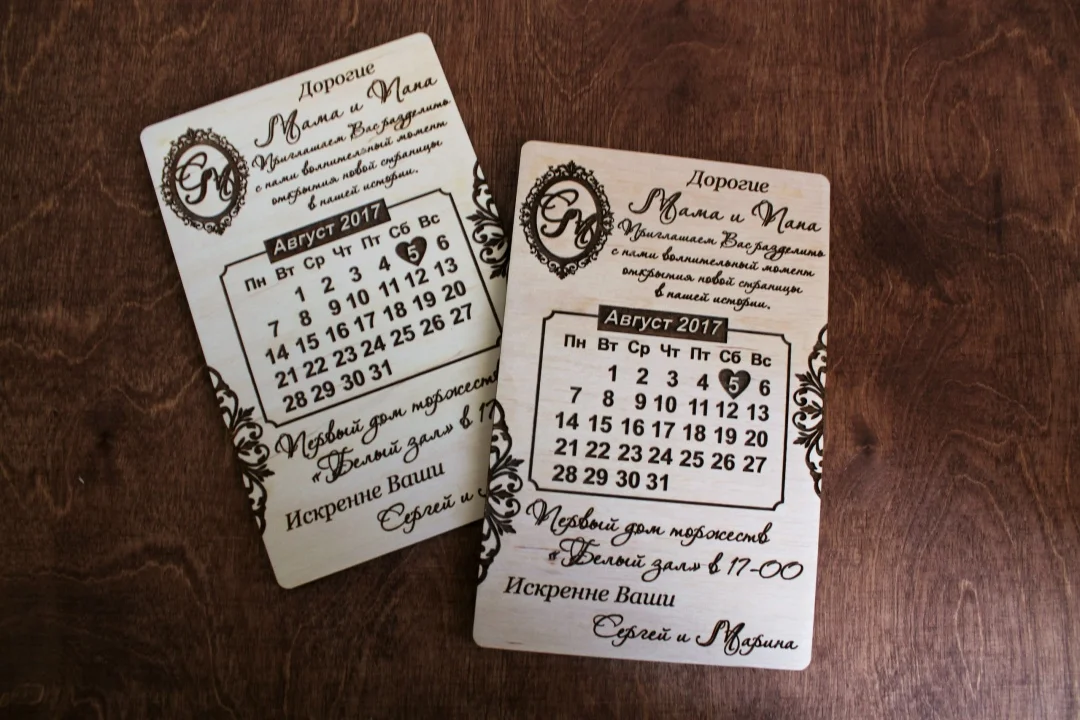 Дорогие
Мама и Папа
Приглашаем Вас разделить
с нами волнительный момент
открытия новой страницы
в нашей истории.
Август 2017
Пн Вт Ср Чт Пт Сб Вс
1 2 3 4 5 6
7 8 9 10 11 12 13
14 15 16 17 18 19 20
21 22 23 24 25 26 27
28 29 30 31
Первый дом торжеств
«Белый зал» в 17
Искренне Ваши
Сергей и
СМ
Дорогие
Мама и Папа
Приглашаем Вас разделить
с нами волнительный момент
открытия новой страницы
в нашей истории.
Август 2017
Пн Вт Ср Чт Пт Сб Вс
1 2 3 4 5 6
7 8 9 10 11 12 13
14 15 16 17 18 19 20
21 22 23 24 25 26 27
28 29 30 31
Первый дом торжеств
«Белый зал» в 17-00
Искренне Ваши
Сергей и Марина
СМ